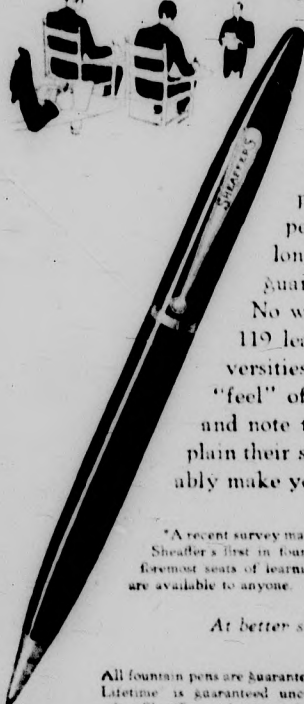 SHEAFFER'S
p
pe
lon
guar
No w
119 lea
versities
"feel" of
and note t
plain their s
ably make yo
"A recent survey ma
Sheaffer's first in foun
foremost seats of learni
are available to anyone.
At better s
All fountain pens are guarante
Lifetime is guaranteed unc